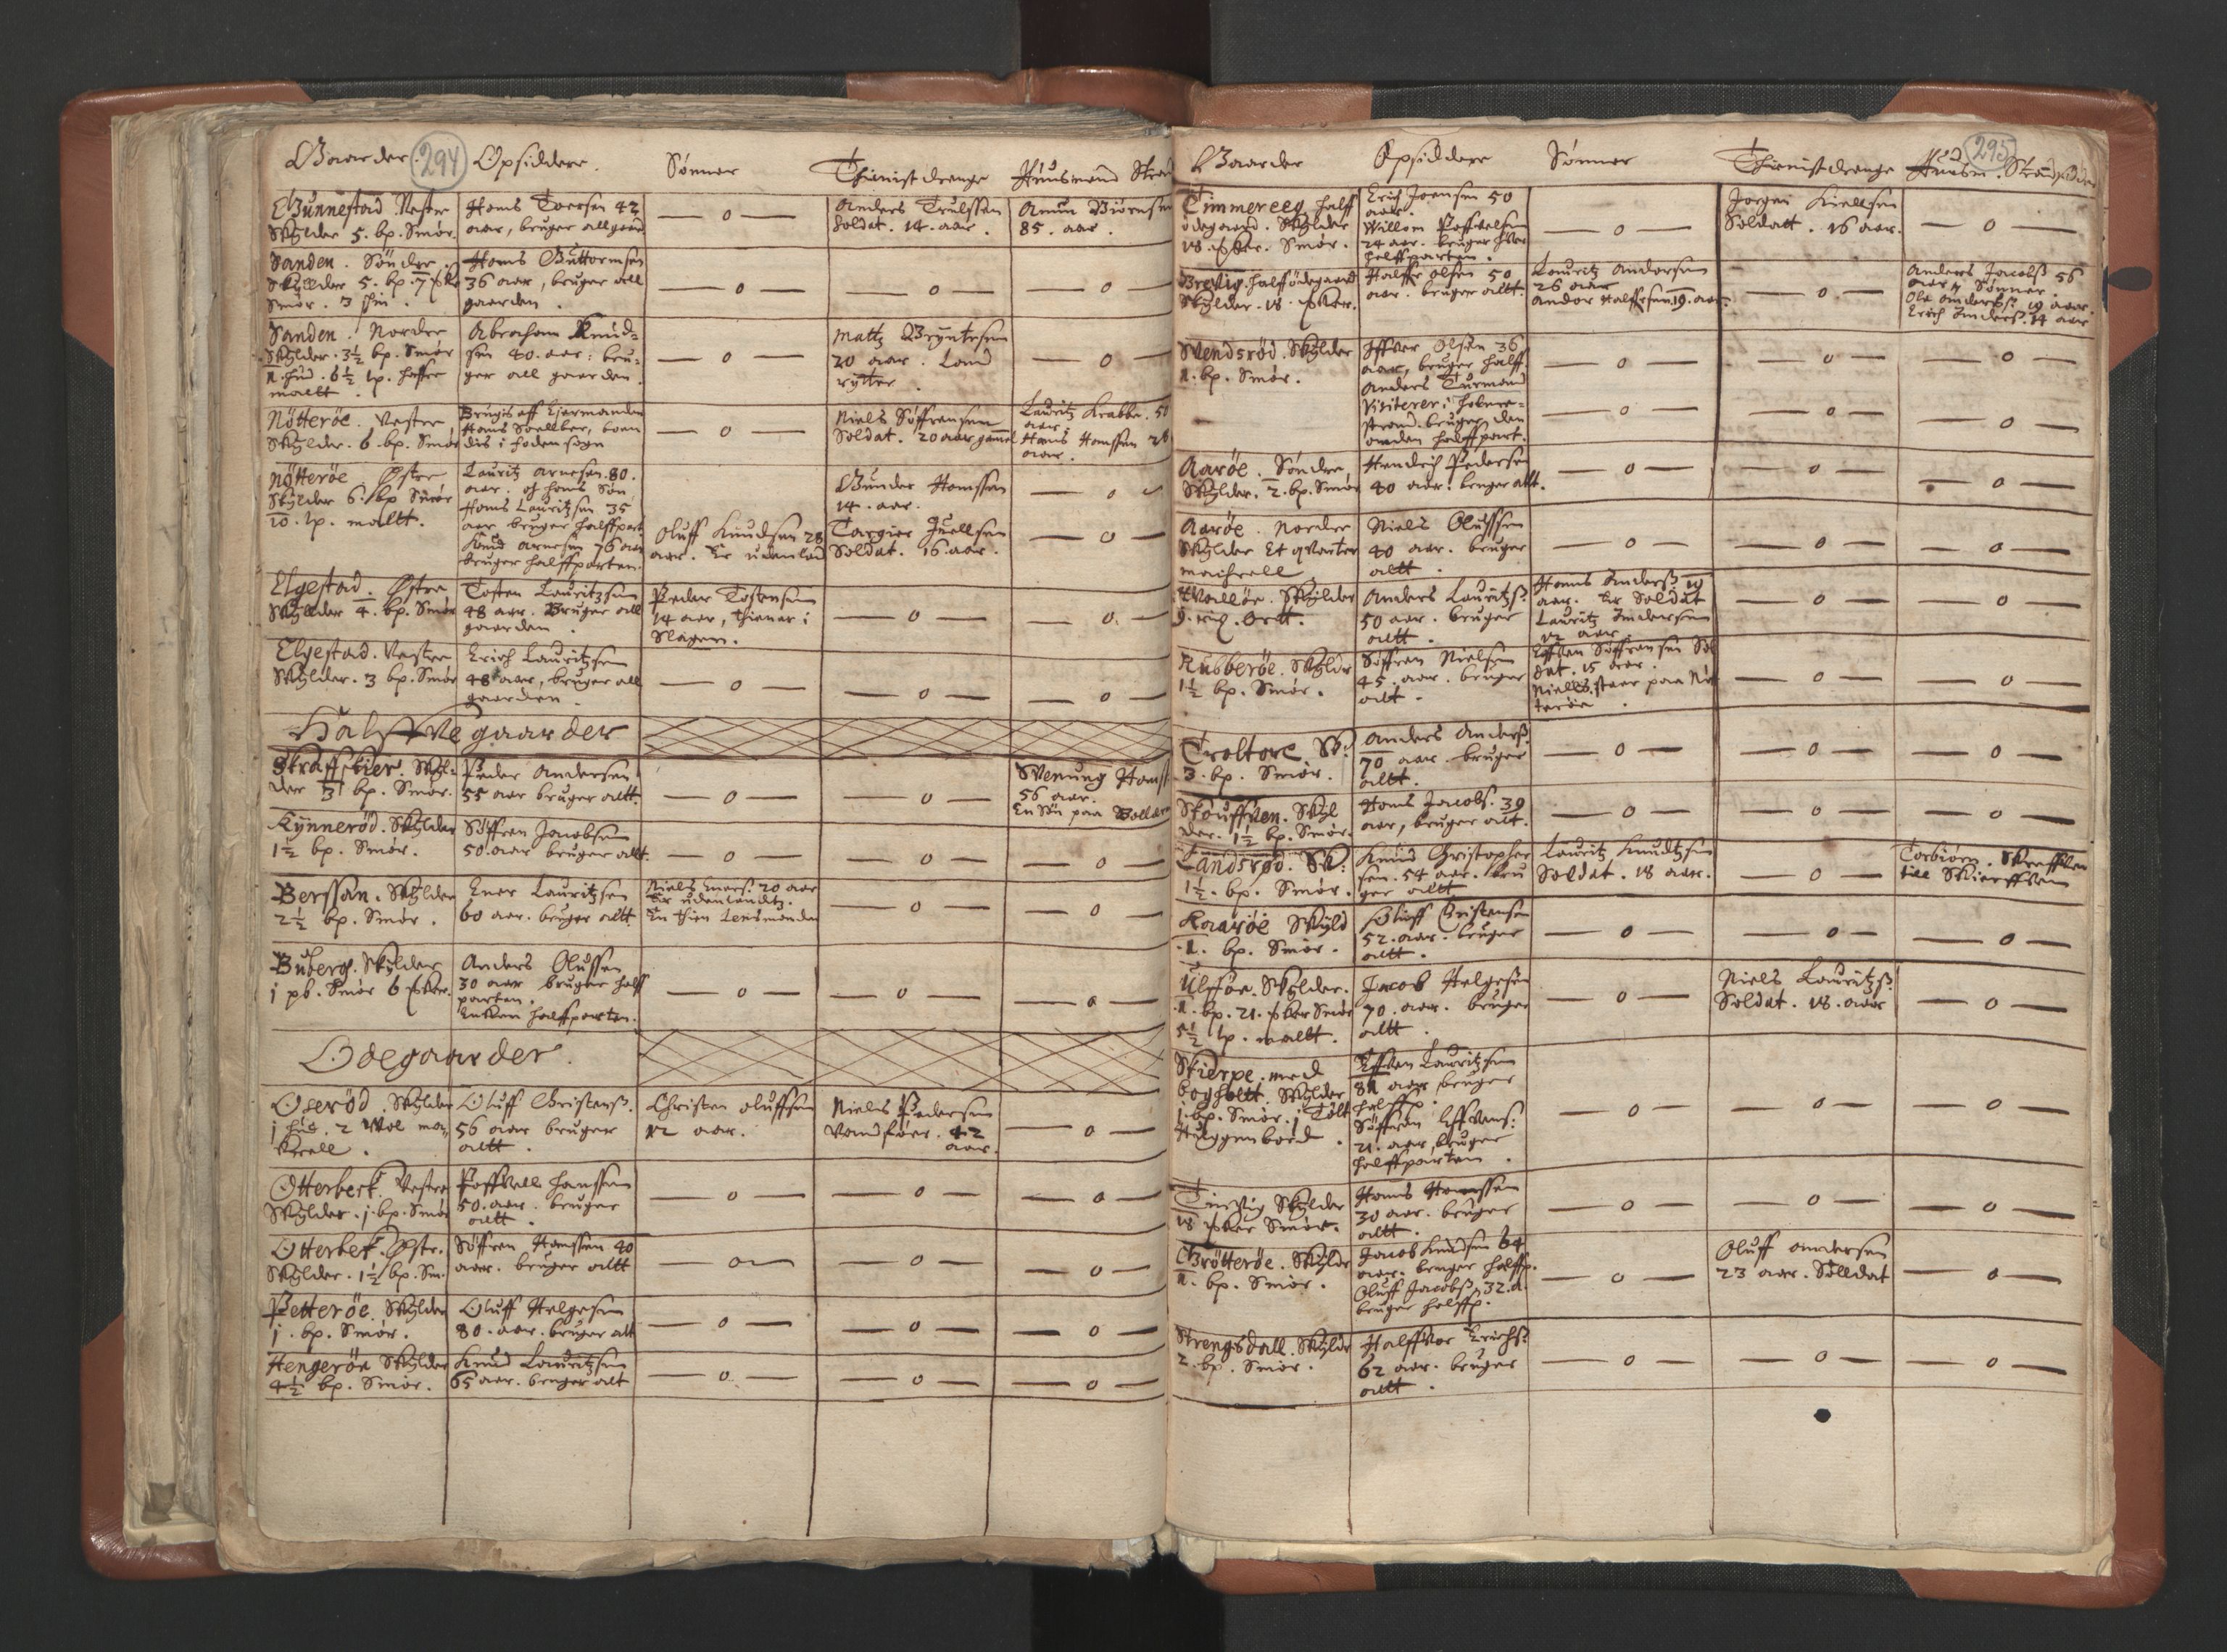 294
Gaarder. Opsiddere. Sønner Thienist drenge Huusmend Strand
Gunnestad. Vestre
Skylder 5. bp. Smør.
Hans Toersen 42
aar, bruger all gaard
— o —
Anders Trulssen
Soldat. 14. aar.
Amun Biørnsen
85. aar.
Sanden. Søndre.
Skyllder 5. bp. 7
Smør. 3
Hans Guttormsen
36 aar, bruger all
gaarden.
— o — — o — — o —
Sanden. Nordre
Skylder. 3½ bp. Smør
1. hud. 6½ lp. haffre
mallt.
Abraham Knud-
sen 40. aar: bru-
ger all gaarden.
— o —
Mattz Bryntesen
20 aar. Land
rytter.
— o —
Nøtterøe. Vestre
Skylder. 6. bp. Smør
Brugis aff
Hans boen
dis i sogn
— o —
Niels Søffrensen
Soldat. 20 aar gammel
Lauritz Krabbe. 50
aar.
Hans Hanssen 26
aar.
Nøtterøe Østre
Skylder 6. bp Smør
10. lp. mallt.
Lauritz Arnesen. 80.
aar. og hans Søn
Hans Lauritzsen 35
aar bruger halffpart
Knud Arnesen 76 aar
bruger halffparten.
Oluff Knudsen 28
aar. Er udenland
Gunder Hanssen
14. aar.
Targier Juellsen
Soldat. 16. aar.
— o —
— o —
Elgestad. Østre
Skyllder 4. bp. Smør
Tosten Lauritzsen
48 aar. Bruger all
gaarden.
Peder Tostensen
14 aar, thiener i
Slagen.
— o — — o —
Elgestad. Vestre
Skylder. 3 bp. Smør
Erich Lauritzsen
48 aar, bruger all
gaarden.
— o — — o — — o —
Halffve gaarder
Straffskier. Skyl-
der 3 bp. Smør.
Peder Andersen
55 aar bruger altt.
— o — — o —
Swenung Hanss
56 aar.
En Søn paa
Kynnerød. Skylder
1½ bp. Smør.
Søffren Jacobsen
50. aar bruger altt.
— o — — o — — o —
Berssan. Skylder
2½ bp. Smør.
Ener Lauritzsen
60 aar. bruger altt
Niels Eners. 20 aar
Er udenlandtz.
En thien Lensmanden
— o — — o —
Buberg. Skylder
j pb. Smør 6
Anders Olussen
30 aar bruger halff
parten.
Encken halffparten.
— o — — o — — o —
Ødegaarder.
Oserød. Skylder
j hud. 2 Vol ma-
krell.
Oluff Christenss.
56 aar bruger
altt.
Christen Oluffsen
12 aar.
Niels Pedersen
Vandføer. 42
aar.
— o —
Otterbeck. Vestre
Skylder. j. bp. Smør
Poffvell Hanssen
50. aar. bruger
altt.
— o — — o — — o —
Otterbek. Østr.
Skylder. 1½ bp. Sm.
Søffren Hanssen 40
aar. bruger altt
— o — — o — — o —
Petterøe. Skylder
j. bp. Smør.
Oluff Helgesen
80. aar. bruger alt
— o — — o — — o —
Hengerøe Skylder
4½ bp. Smør.
Knud Lauritzsen
65 aar. bruger alt
— o — — o — — o —
295
Gaarder Opsiddere Sønner Thienistdrenge Huusm. Strandsidder
Timmereeg halff
ødegaard. Skylder
18. Smør.
Erich Joensen 50
aar.
Willom Poffvelsen
24 aar. bruger hver
halffparten.
— o —
Jørgen Kiellsen
Soldatt. 16 aar.
— o —
Brevig. halff ødegaard
Skylder. 18.
Halffr Olsen 50
aar. bruger altt.
Lauritz Andersen
26 aar
Andor Halffrsen. 19. aar.
— o —
Anders Jacobss 56
aar Sønner.
Ole Anderss. 19 aar.
Erich Anderss. 14 aar
Wendsrød. Skylder
1. bp. Smør.
Iffver Olsen 36
aar, bruger halff.
Anders Turmand
Visiterer i Holme-
strand. bruger den
anden halffpart.
— o — — o — — o —
— o — — o — — o —
Aarøe. Søndre
Skylder. 2. bp. Smør
Hendrich Pedersen
40 aar. bruger altt.
— o — — o — — o —
Aarøe. Nordre
Skylder Et qvarter
machrell
Niels Olussen
40 aar. bruger
altt.
— o — — o — — o —
Hvalløe. Skylder
Ortt.
Anders Lauritzs.
50 aar. bruger
altt.
Hans Anderss 19
aar. Er Soldat
Lauritz Andersen
12 aar.
— o — — o —
Rubberøe. Skyldr
1½ bp. Smør.
Søffren Nielsen
45. aar. bruger
alt.
Effven Søffrensen Sol
dat. 15 aar.
Niels. staar paa Nøt
terøe.
— o — — o —
Troltore. Sk:
3. bp. Smør.
Anders Anderss.
70 aar. bruger
altt.
— o — — o — — o —
Skouffven. Skyl
der. 1½ bp. Smør.
Hans Jacobs. 39
aar, bruger alt.
— o — — o — — o —
Landsrød. Sk:
1½. bp. Smør.
Knud Christopher
sen. 54 aar. bru
ger altt
Lauritz Knudtzsen
Soldat. 18 aar.
— o —
Torbiørn.
till
Kaarøe Skyld
1. bp. Smør.
Oluff Christensen
52. aar. bruger
altt.
— o — — o — — o —
Ulfføe. Skylder.
1. bp. 21. Smør
5½ lp. mallt.
Jacob Helgesen
70. aar. bruger
altt.
— o —
Niels Lauritzs.
Soldat. 18. aar
— o —
Skierpe. med
boghollt. Skylder
j. bp. Smør. j Tølt
Huggenbord.
Effven Lauritzsen
81 aar bruger
halffp.
Søffren Effvens:
21. aar, bruger
halffparten.
— o — — o — — o —
Tinvig Skylder
18 Smør.
Hans Hanssen
30 aar. bruger
altt.
— o — — o — — o —
Grøtterøe. Skyldr
1. bp. Smør.
Jacob Knudsen 64
aar. bruger halffp.
Oluff Jacobss. 32. a.
bruger halffp.
— o —
Oluff Andersen
23 aar. Solldat
— o —
Strengsdall. Skyldr
2. bp. Smør.
Halffvor Erichs.
62 aar. bruger
altt.
— o — — o — — o —